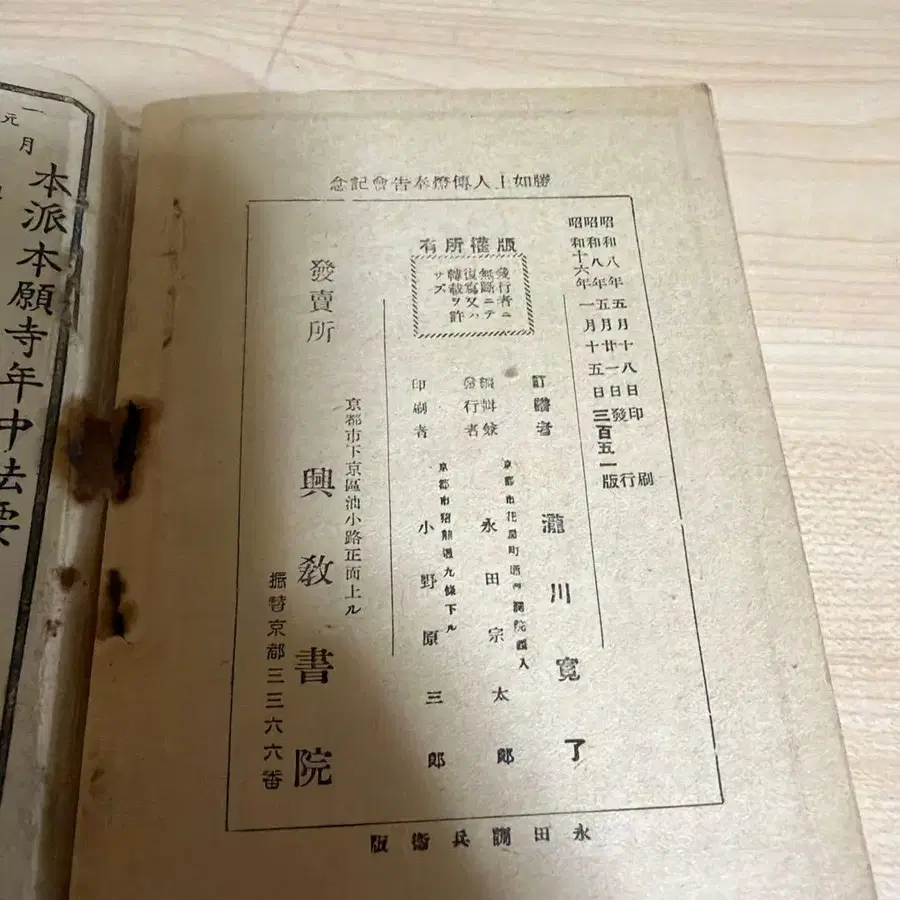 勝如上人傳燈奉告會記念
昭和八年五月十八日印刷
昭和八年五月廿一日發行
昭和十六年一月十五日三百五一版
版權所有
發行者ニ
無斷ニテ
復寫又ハ
轉載ヲ許
サズ
瀧川寬了
編輯兼
發行者
京都市花屋町通西洞院西入
永田宗太郎
印刷者
京都市猪熊通九條下ル
小野原三郎
發賣所
京都市下京區油小路正面上ル
興教書院
振替京都三三六六番
永田調兵衞版
本派本願寺年中法要
一月
元